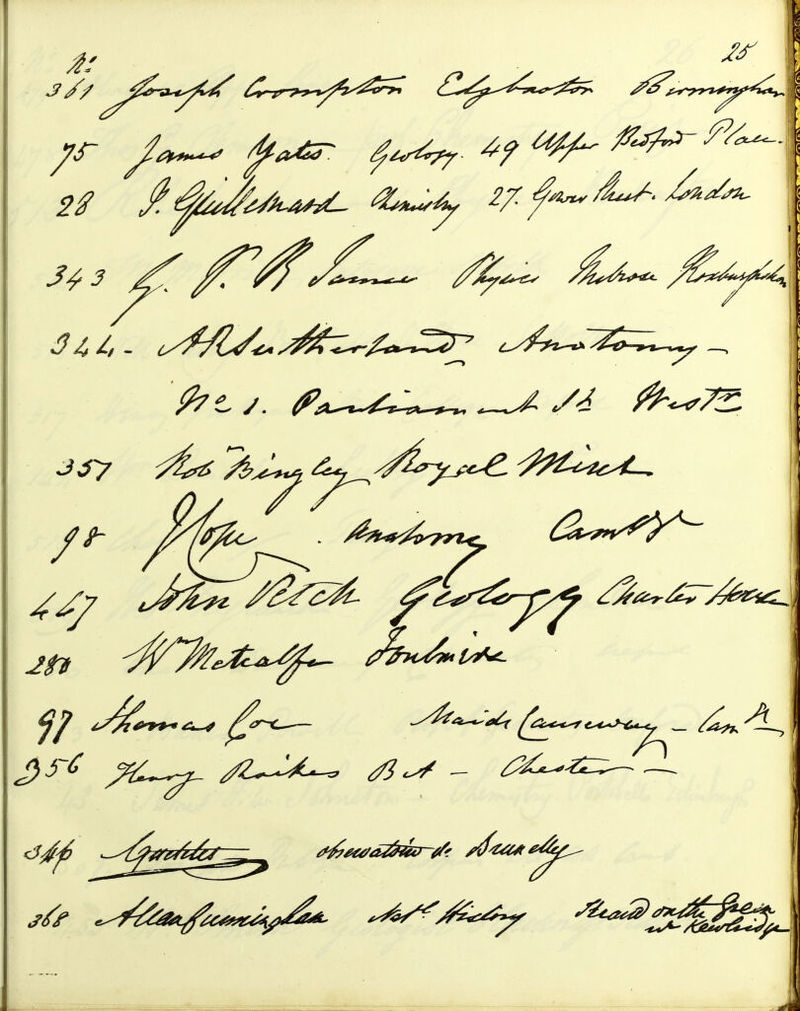 25
No
361 Joseph Crompton Edgbaston Birmingham
75 James Yates. Geology. 49 Upper Bedford Place.
28 J. Guillemard Chemistry 27. Gower Street. London
343 G. P. R James Physics Melrose Roxburghshire
344 - A R Sutherland Anatomy -
No 1. Parliament St Westr
351 Robt Bingley Royal Mint
98 Hope . Anatomy
447 John Vetch Geology Charter House
280 Wm Metcalfe Foulmire
97 Thomas Coe Maids Causeway -
356 Henry Raikes BA - Chester -
346 Quetelet observatoire de Bruxelles
368 Allan Cunningham Natl History Strand on the Green
nr Kewbridge